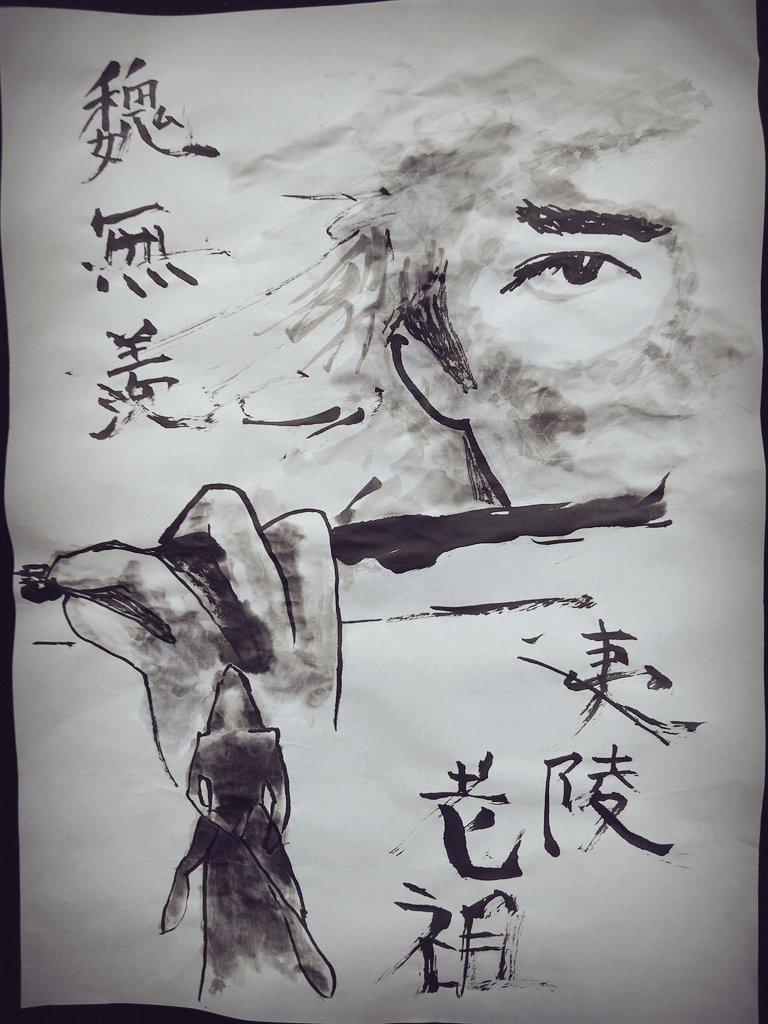 魏無羨
夷陵
老祖